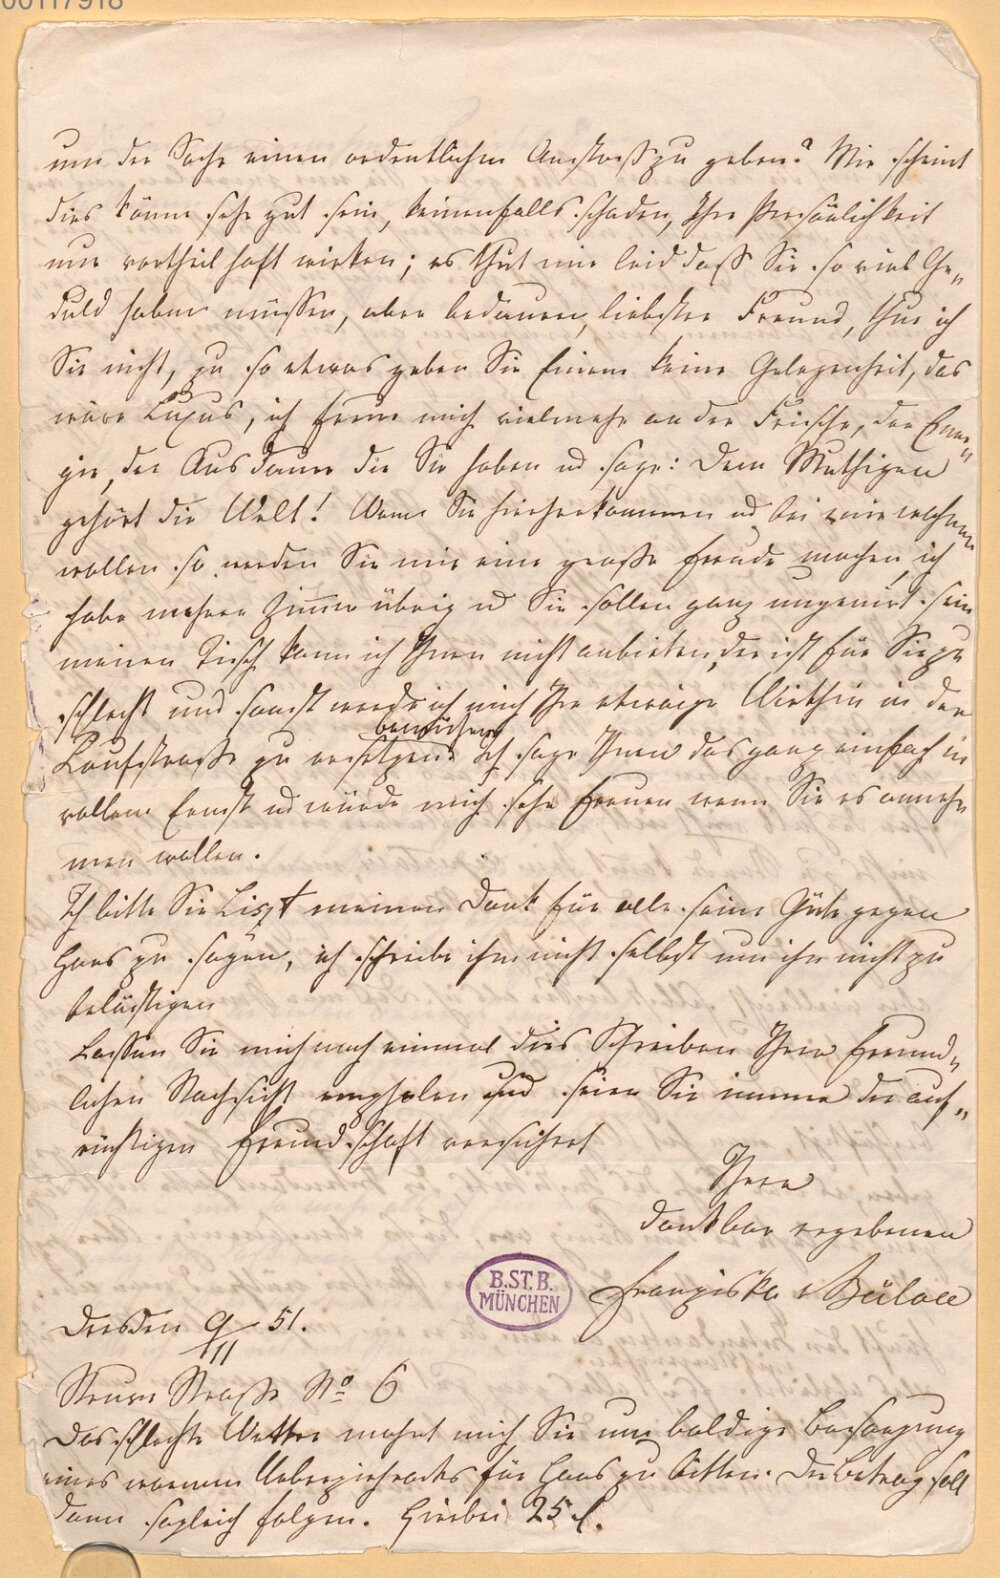 00117918
um der Sache einen ordentlichen Anstoß zu geben? Mir scheint
dies könne sehr gut sein, keinenfalls schaden, Ihre Persönlichkeit
nur vortheilhaft wirken; es thut mir leid daß Sie so viel Ge„
duld haben müssen, aber bedauern, liebster Freund, thue ich
Sie nicht, zu so etwas geben Sie Einem keine Gelegenheit, das
wäre Luxus, ich freue mich vielmehr an der Frische, der Ener„
gie, der Ausdauer die Sie haben ud sage: Dem Muthigen
gehört die Welt! Wenn Sie hierherkommen ud bei mir wohnen
wollen so werden Sie mir eine große Freude machen, ich
habe mehrere Zimmer übrig ud Sie sollen ganz ungenirt sein
meinen Tisch kann ich Ihnen nicht anbieten, der ist für Sie zu
schlecht und sonst werde ich mich Ihre etwaige Wirthin in der
bemühen
Laufstraße zu ersetzen. Ich sage Ihnen das ganz einfach in
vollem Ernst ud würde mich sehr freuen wenn Sie es anneh„
men wollen.
Ich bitte Sie Liszt meinen Dank für alle seine Güte gegen
Hans zu sagen, ich schreibe ihm nicht selbst um ihn nicht zu
belästigen
Lassen Sie mich noch einmal dies Schreiben Ihrer freund„
lichen Nachsicht empfehlen und seien Sie immer der auf„
richtigen Freundschaft versichert
Ihrer
dankbar ergebenen
Franziska v Bülow
B.ST.B.
MÜNCHEN
Dresden 9/11 51.
Struve Straße No 6
Das schlechte Wetter mahnt mich Sie um baldige Besorgung
eines warmen Ueberziehrocks für Hans zu bitten. Der Betrag soll
dann sogleich folgen. Hierbei 25